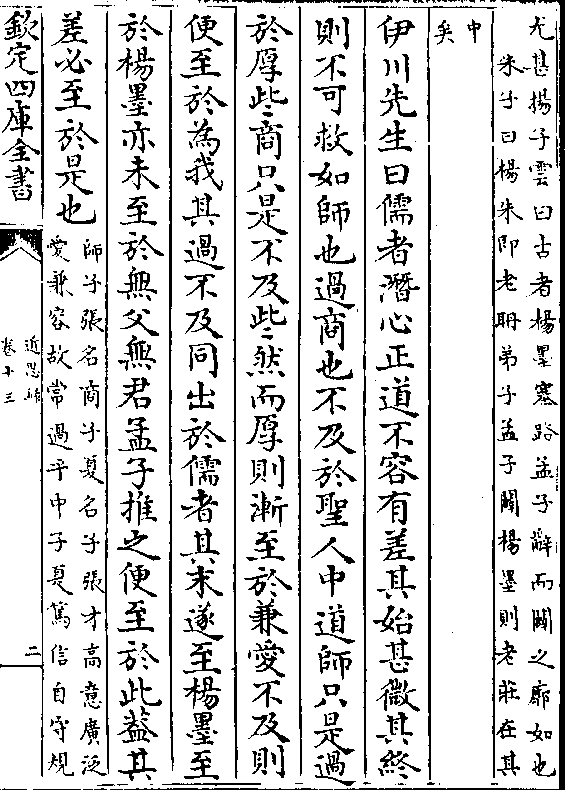 尤甚揚子雲曰古者楊墨塞路孟子辭而闢之廓如也
朱子曰楊朱即老聃弟子孟子闢楊墨則老莊在其
中
矣
伊川先生曰儒者潛心正道不容有差其始甚微其終
則不可救如師也過商也不及於聖人中道師只是過
於厚些商只是不及些然而厚則漸至於兼愛不及則
便至於為我其過不及同出於儒者其末遂至楊墨至
於楊墨亦未至於無父無君孟子推之便至於此蓋其
差必至於是也
師子張名商子夏名子張才高意廣泛
愛兼容故常過乎中子夏篤信自守規
欽定四庫全書
近思錄
卷十三
二